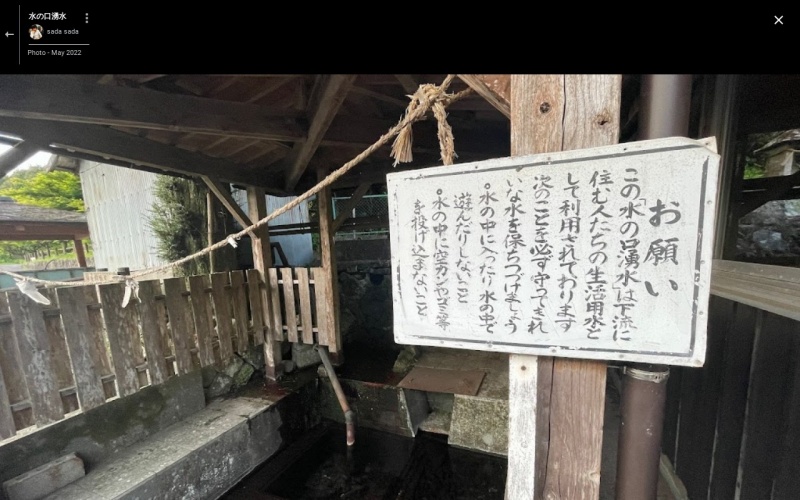 水の口湧水
sada sada
Photo - May 2022
お願い
この「水の口湧水」は下流に
住む人たちの生活用水と
して利用されております
次のことを必ず守ってきれ
いな水を保ちつづけましょう
°水の中に入ったり水の中で
遊んだりしないこと
°水の中に空カンやゴミ等
を投げ込まないこと